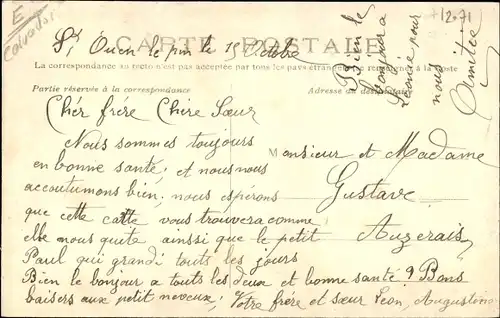 E
Calvados
+12.71
CARTE POSTALE
St Ouen le pin le 15 Octobre
La correspondance au recto n'est pas acceptée par tous les pays étrangers se renseigner à la poste
Partie réservée à la correspondance
Adresse du destinataire
Chér frére Chére Sœur
Nous sommes toujours
en bonne santé; et nous nous
accoutumons bien. nous espérons
que cette catte vous trouvera comme
elle nous quite ainsi que le petit
Paul qui grandi touts les jours
Bien le bonjour a touts les deux et bonne santé 9 Bons
baisers aux petit neveux; Votre frére et sœur Léon, Augustine
Monsieur et Madame
Gustave
Auzerais
Bien le
bonjour a
Léonie pour
nous
Amitiée